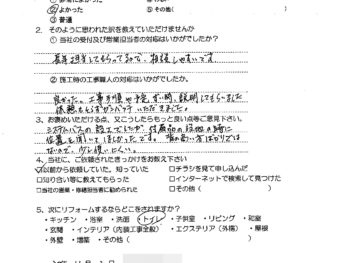 ② よかった ⑤ その他(
③ 普通
2. そのように思われた訳を教えていただけませんか
① 当社の受付及び営業担当者の対応はいかがでしたか?
長年担当してもらってるので、相談しやすいです。
② 施工時の工事職人の対応はいかがでしたか?
良かった。工事手順や予定、その時、説明してもらいました
3. お褒めいただける点、又こうしたらもっと良い点等ご意見下さい。
システムバスの施工でしたが、付属品の設置の時に
位置を聞いてほしかったです。背の高い者ばかりでは
ないので、少し使いにくい。
4. 当社に、ご依頼されたきっかけをお教え下さい
☑以前から依頼していた。知っていた □チラシを見て申し込んだ
□知り合い等に教えてもらった □インターネットで検索して見つけた
□当社の営業・修繕担当者に勧められた □その他(
5. 次にリフォームするならどこをされますか?
・キッチン ・浴室 ・洗面 ・トイレ ・子供室 ・リビング ・和室
・玄関 ・インテリア(内装工事全般) ・エクステリア(外構) ・屋根
・外壁 ・増築 ・その他(